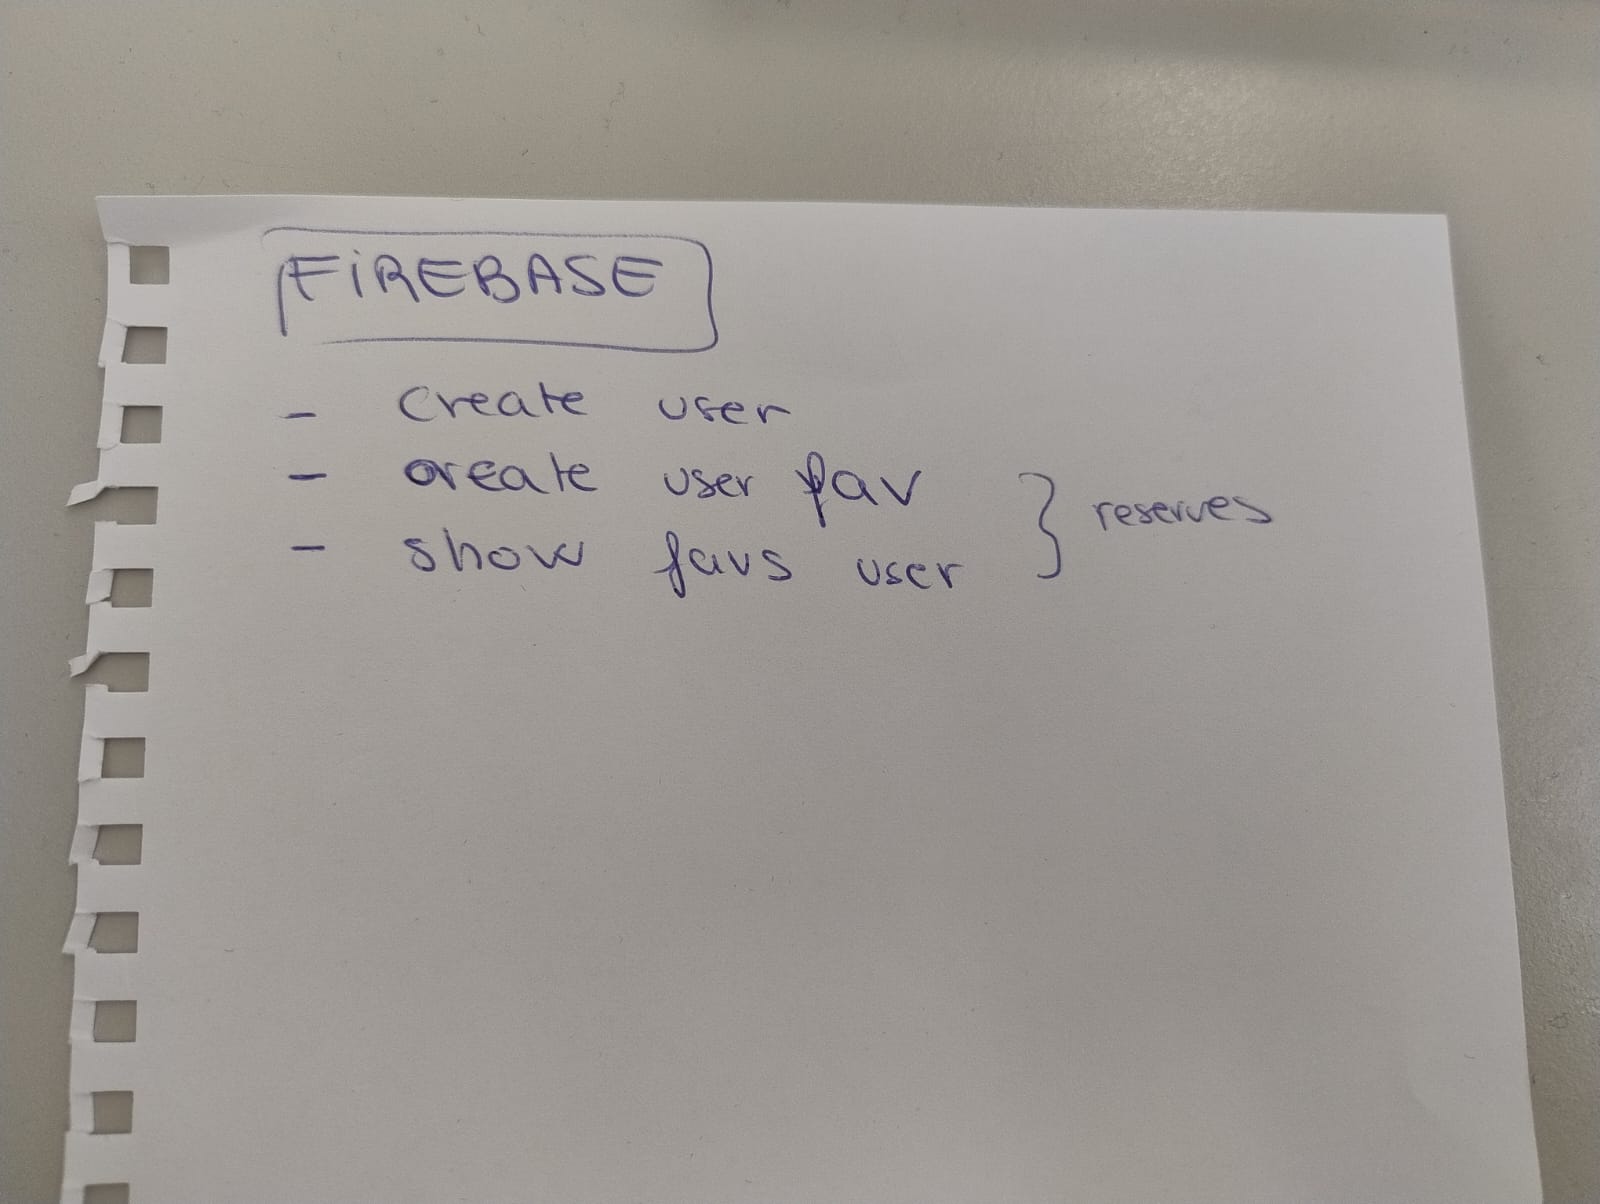 FiREBASE
- create user
- create user fav
- show favs user
} reserves